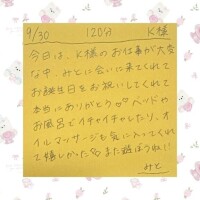 9/30 120分 K様
今日は、K様のお仕事が大変
な中、みとに会いに来てくれて
お誕生日をお祝いしてくれて
本当にありがとう♡♡ベッドや
お風呂でイチャイチャしたり、オ
イルマッサージも気に入ってくれ
て嬉しかった また遊ぼうね!!
みと